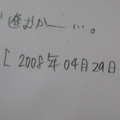 進むか——…。
[ 2008年04月29日